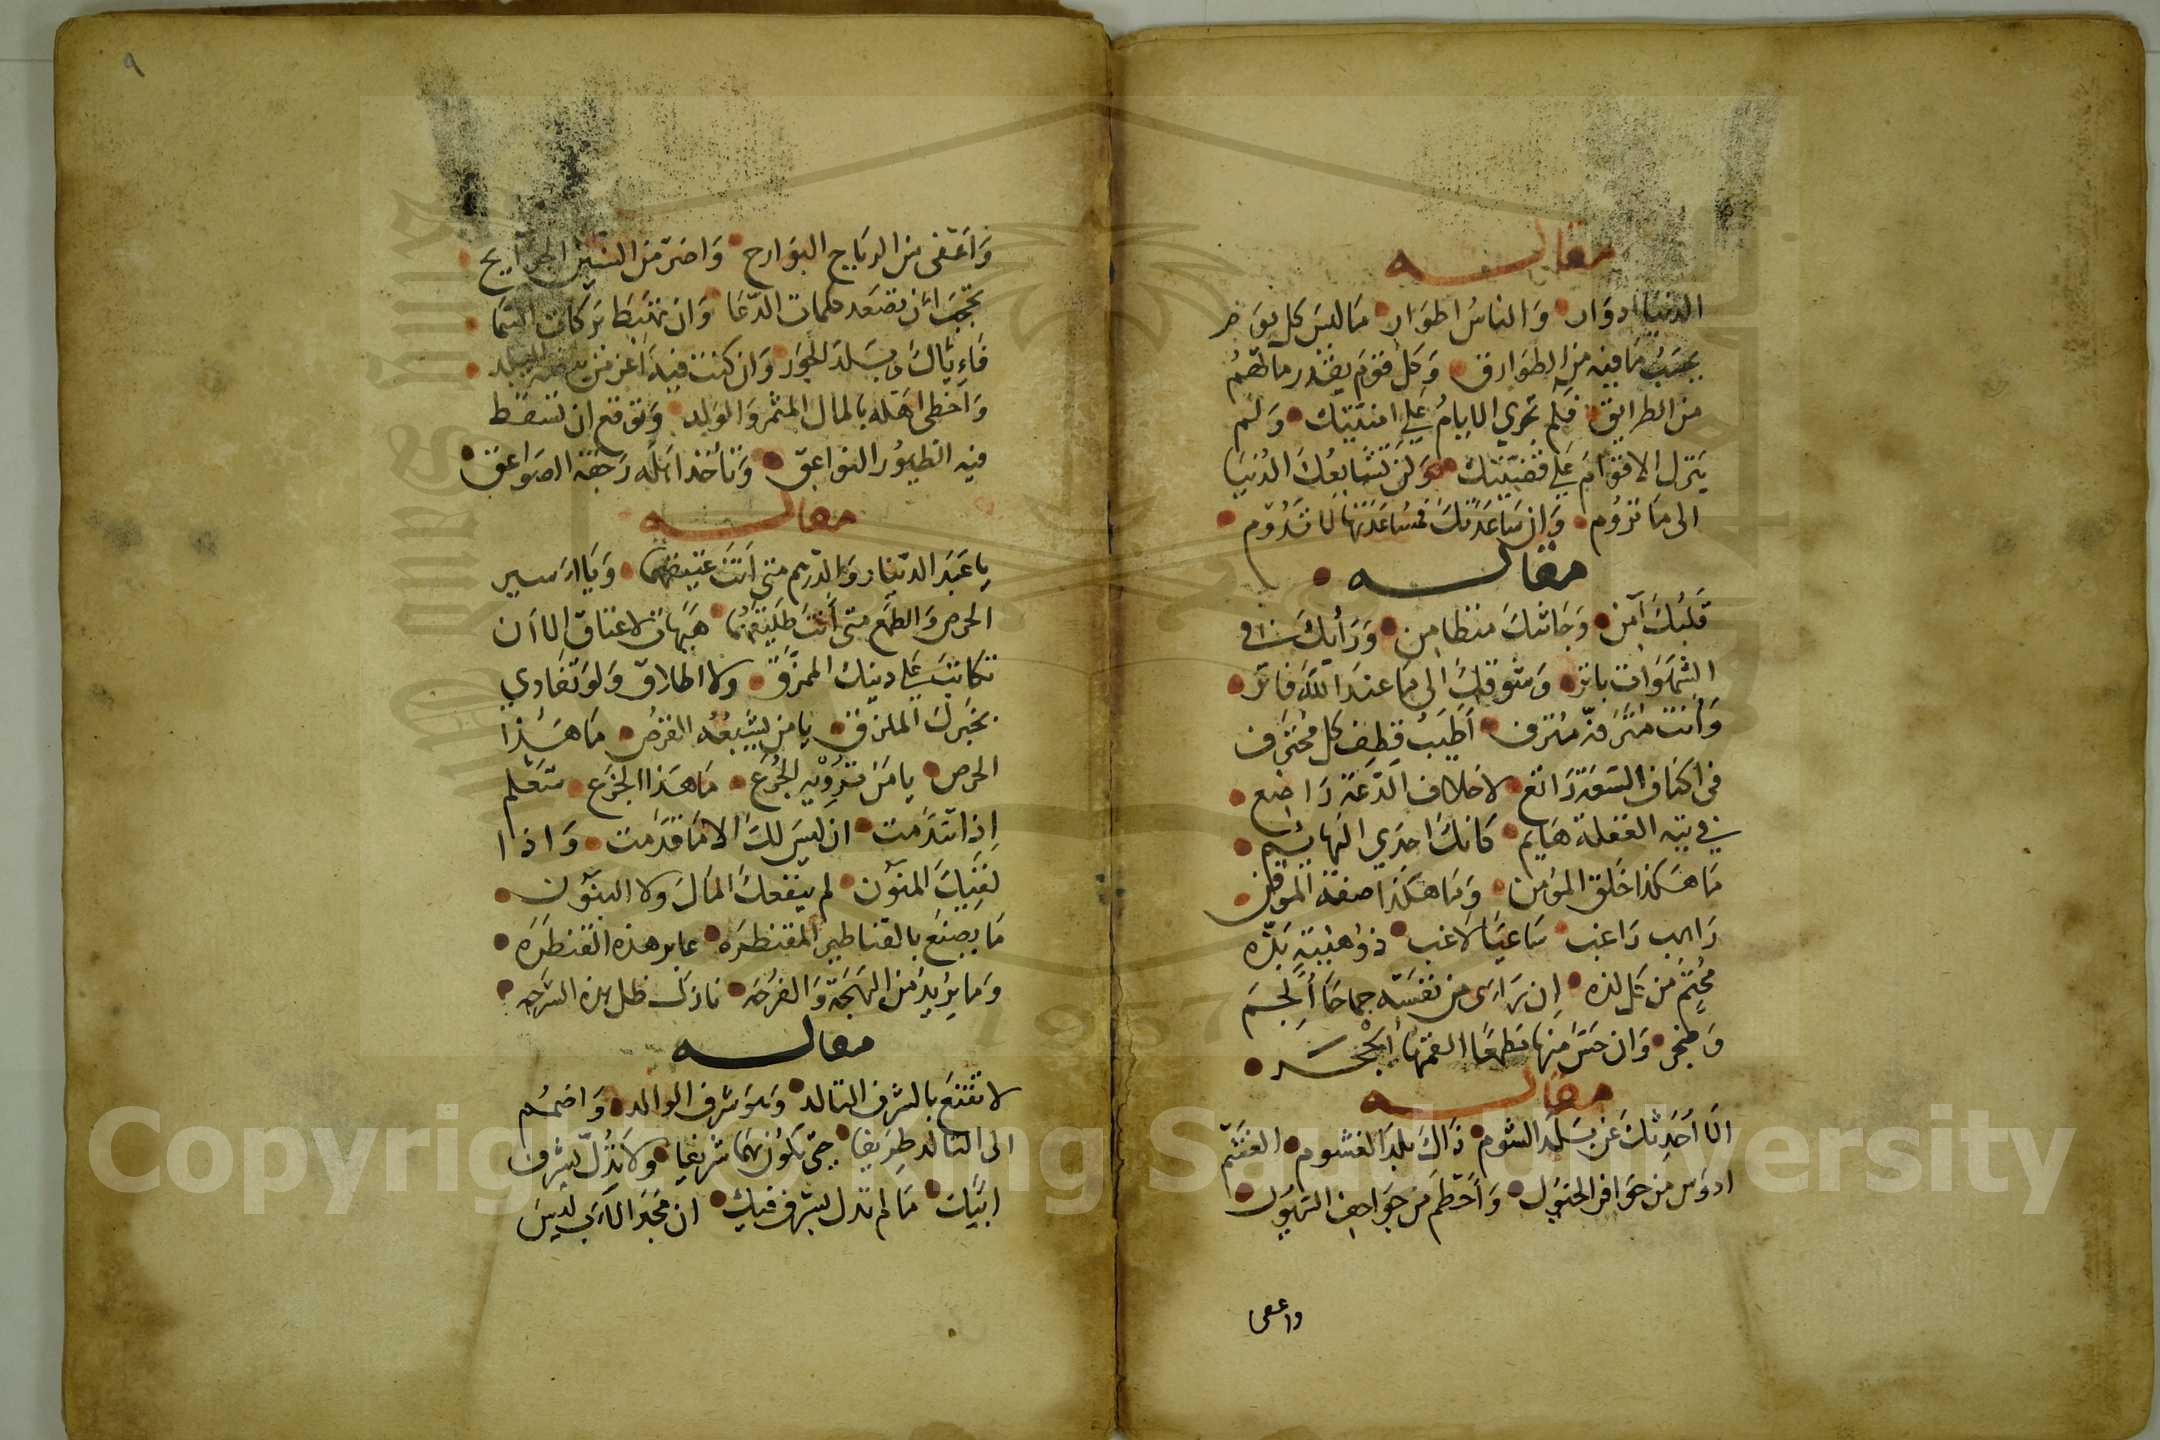 مقاله
الدنيا ادوار والناس اطوار فالبس كل يوم
بحسب ما فيه من الطوارق وكل قوم بقدر ما لهم
من الطرايق فلم تجري الايام على امنيتك ولم
ينزل الاقوام على قضيتك ولن تشايعك الدنيا
الى ما تروم وان ساعدتك فمساعدتها لا تدوم
مقاله
قلبك آمن وجاشك متطامن ورأيك في
الشهوات باتر وشوقك الى ما عند الله فاتر
وأنت مترفة مترف أطيب قطف كل مخترف
في اكناف السعة راتع لاخلاف الدعة راضع
في تيه الغفلة هايم كانك احدي البهايم
ما هكذا خلق المؤمن وما هكذا صفة الموقن
راهب راغب ساعيا لاغب ذو هيبة بذه
محتم من كل لذه ان راى من نفسه جماحا ألجم
وحجر وان حس منها مطمعا القمها الحجر
مقاله
الا أحدثك عن بلد الشوم ذاك بلد الغشوم الغشم
ادوس من حوافر الخيول واحطم من جواحف السيول
واعفى
٩
واعفى من الرياح البوارح واضر من السنين الجرايح
تحجب ان تصعد كلمات الدعا وان تهبط بركات السما
فاياك وبلد الجور وان كنت فيه أعز من بيضة البلد
واحظى اهله بالمال المثمر والولد وتوقع ان تسقط
فيه الطيور النواعق وتأخذ اهله رجفة الصواعق
مقاله
يا عبد الدينار والدرهم متى أنت عتيقهما ويا اسير
الحرص والطمع متى أنت طليقهما هيهات لا عتاق الا ان
تكاتب على دينك الممزق ولا اطلاق ولو تفادي
بخيرك الملزق يا من يشبعه القرص ما هذا
الحرص يا من ترويه الجرع ما هذا الجزع ستعلم
اذا تندمت ان ليس لك الا ما قدمت واذا
لقيت المنون لم ينفعك المال ولا البنون
ما يصنع بالقناطير المقنطره عابر هذه القنطره
وما يريد من البهجة والفرحه نازل ظل هذه السرحه
مقاله
لا تقنع بالشرف التالد وهو شرف الوالد واضمم
الى التالد طريفا حتى تكون بهما شريفا ولا تدل بشرف
ابيك ما لم تدل بشرف فيك ان مجد الاب ليس
Copyright © King Saud University
1957